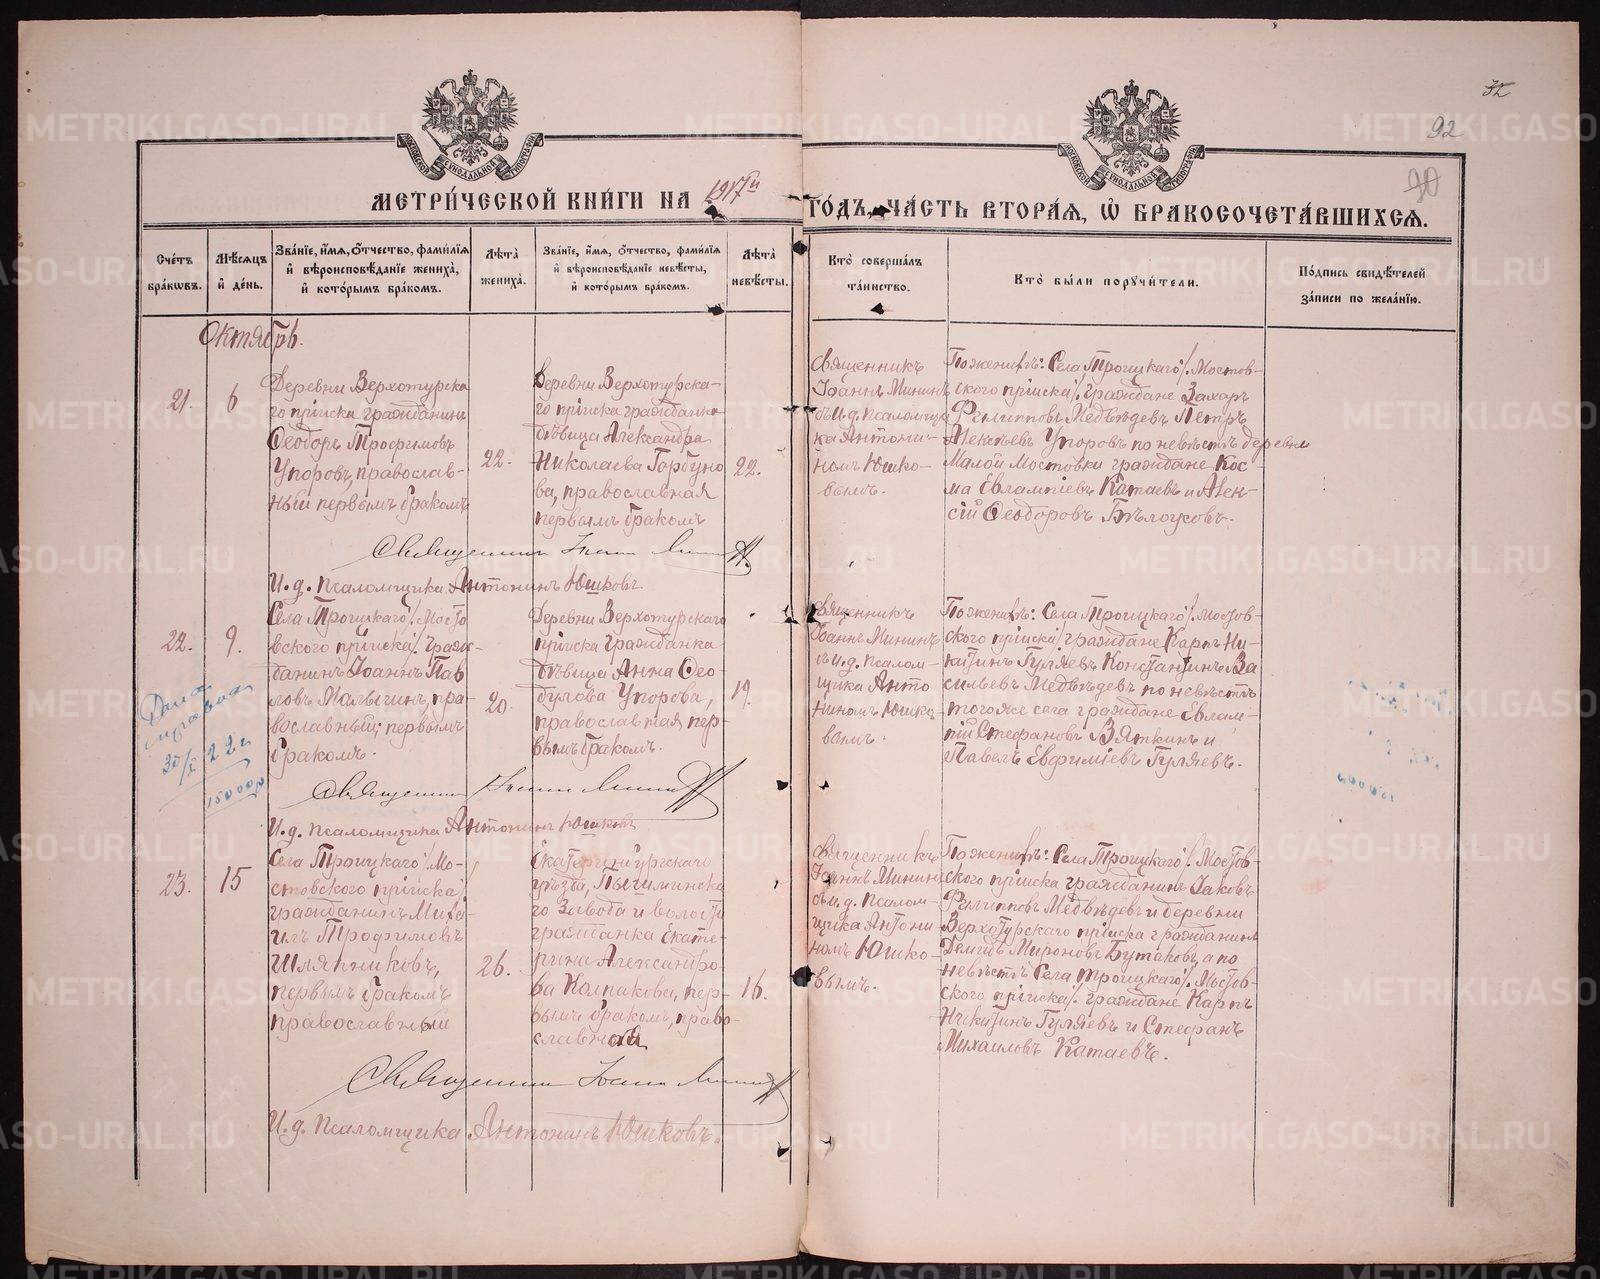 32
92
90
МОСКОВСКОЙ СѴНОДАЛЬНОЙ ТИПОГРАФІИ
МОСКОВСКОЙ СѴНОДАЛЬНОЙ ТИПОГРАФІИ
МЕТРИ́ЧЕСКОЙ КНИ́ГИ НА 1917й ГО́ДЪ, ЧА́СТЬ ВТОРА́Я, Ѡ БРАКОСОЧЕТА́ВШИХСЯ.
Сче́тъ бра́ковъ.
Мѣ́сяцъ и де́нь.
Зва́ніе, и́мя, о́тчество, фами́лія и вѣроисповѣ́даніе жениха̀, и кото́рымъ бра́комъ.
Лѣта̀ жениха̀.
Зва́ніе, и́мя, о́тчество, фами́лія и вѣроисповѣ́даніе невѣ́сты, и кото́рымъ бра́комъ.
Лѣта̀ невѣ́сты.
Кто̀ соверша́лъ та́инство.
Кто̀ бы́ли поручи́тели.
По́дпись свидѣ́телей за́писи по жела́нію.
Октябрь.
21.
6
Деревни Верхотурска-
го пріиска гражданинъ
Ѳеодоръ Трофимовъ
Упоровъ, православ-
ный первымъ бракомъ
22.
Деревни Верхотурска-
го пріиска гражданка
дѣвица Александра
Николаева Горбуно
ва, православная
первымъ бракомъ
22.
Священникъ
Іоаннъ Мининъ
съ и.д. псаломщи
ка Антони-
номъ Юшко-
вымъ.
По женихѣ: Села Троицкаго /Мостов-
ского пріиска/ граждане Захаръ
Филипповъ Медвѣдевъ Петръ
Алексѣевъ Упоровъ по невѣстѣ деревни
Малой Мостовки граждане Кос-
ма Евлампіевъ Катаевъ и Алек-
сій Ѳеодоровъ Бѣлоусовъ.
Священникъ Іоаннъ Мининъ
И.д. псаломщика Антонинъ Юшковъ
22.
9.
Села Троицкаго /Мосто
вского пріиска/ граж-
данинъ Іоаннъ Пав
ловъ Малыгинъ, пра-
вославный, первымъ
бракомъ.
20.
Деревни Верхотурскаго
пріиска гражданка
дѣвица Анна Ѳео-
дулова Упорова,
православная пер-
вымъ бракомъ.
19.
Священникъ
Іоаннъ Мининъ
съ и.д. псалом-
щика Анто
ниномъ Юшко-
вымъ.
По женихѣ: Села Троицкаго /Мостов-
ского пріиска/ граждане Карпъ Ни-
китинъ Гуляевъ Константинъ Ва
сильевъ Медвѣдевъ по невѣстѣ
того же села граждане Евлам-
пій Стефановъ Вяткинъ и
Павелъ Евфиміевъ Гуляевъ.
Дана
справка
15000р
Священникъ Іоаннъ Мининъ
И.д. псаломщика Антонинъ Юшковъ
23.
15
Села Троицкаго /Мо-
стовского пріиска/
гражданинъ Миха-
илъ Трофимовъ
Шляпниковъ,
первымъ бракомъ
православный
26.
Екатеринбургскаго
уѣзда, Пышминска
го Завода и волости
гражданка Екате-
рина Александро-
ва Колпакова, пер-
вымъ бракомъ, право-
славная
16.
Священникъ
Іоаннъ Мининъ
съ и.д. псалом-
щика Антони-
номъ Юшко-
вымъ.
По женихѣ: Села Троицкаго /Мостов-
ского пріиска гражданинъ Іаковъ
Филипповъ Медвѣдевъ и деревни
Верхотурскаго пріиска гражданинъ
Демидъ Мироновъ Бутаковъ, а по
невѣстѣ Села Троицкаго /Мостов-
ского пріиска/ граждане Карпъ
Никитинъ Гуляевъ и Стефанъ
Михаиловъ Катаевъ.
Священникъ Іоаннъ Мининъ
И.д. псаломщика Антонинъ Юшковъ.
METRIKI.GASO-URAL.RU